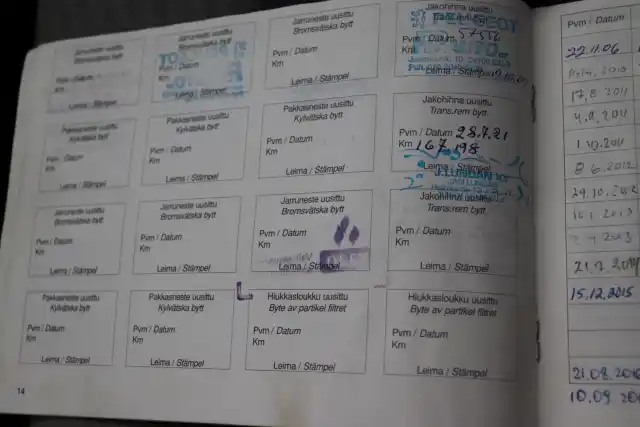 Jarruneste uusittu
Bromsvätska bytt
Pvm / Datum
Km
Leima / Stämpel
Jarruneste uusittu
Bromsvätska bytt
Pvm / Datum
Km
Leima / Stämpel
Jarruneste uusittu
Bromsvätska bytt
Pvm / Datum
Km
Leima / Stämpel
Jakohihna uusittu
Trans.rem bytt
PEUGEOT
Pvm / Datum
Km
Leima / Stämpel
Pakkasneste uusittu
Kylvätska bytt
Pvm / Datum
Km
Leima / Stämpel
Pakkasneste uusittu
Kylvätska bytt
Pvm / Datum
Km
Leima / Stämpel
Pakkasneste uusittu
Kylvätska bytt
Pvm / Datum
Km
Leima / Stämpel
Jakohihna uusittu
Trans.rem bytt
Pvm / Datum 28.7.21
Km 167 198
Leima / Stämpel
Jarruneste uusittu
Bromsvätska bytt
Pvm / Datum
Km
Leima / Stämpel
Jarruneste uusittu
Bromsvätska bytt
Pvm / Datum
Km
Leima / Stämpel
Jarruneste uusittu
Bromsvätska bytt
Pvm / Datum
Km
Leima / Stämpel
Jakohihna uusittu
Trans.rem bytt
Pvm / Datum
Km
Leima / Stämpel
Pakkasneste uusittu
Kylvätska bytt
Pvm / Datum
Km
Leima / Stämpel
Pakkasneste uusittu
Kylvätska bytt
Pvm / Datum
Km
Leima / Stämpel
Hiukkasloukku uusittu
Byte av partikel filtret
Pvm / Datum
Km
Leima / Stämpel
Hiukkasloukku uusittu
Byte av partikel filtret
Pvm / Datum
Km
Leima / Stämpel
14
Pvm / Datum
22.11.06
17.8.2011
4.9.2011
1.10.2011
8.6.2012
29.10.2012
10.1.2013
21.2.2014
15.12.2015
21.08.2016
10.09.20